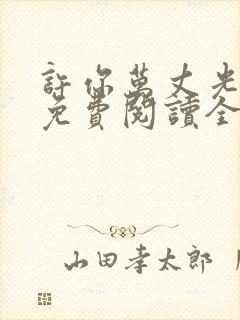 許你萬丈光
免費閱讀全
山田孝太郎